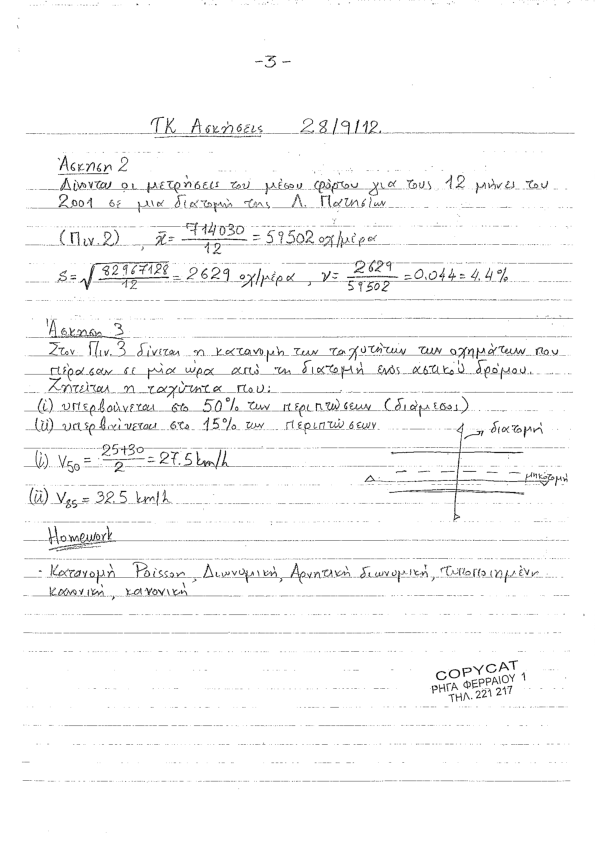 -3-
ΤΚ Ασκήσεις 28/9/12.
Άσκηση 2
Δίνονται οι μετρήσεις του μέσου φόρτου για τους 12 μήνες του
2001 σε μια διατομή της Λ. Πατησίων
(Πιν.2) , x̄ = 714030/12 = 59502 οχ/μέρα
S = √(82967128/12) = 2629 οχ/μέρα , ν = 2629/59502 = 0.044 = 4.4%
Άσκηση 3
Στον Πιν. 3 δίνεται η κατανομή των ταχυτήτων των οχημάτων που
πέρασαν σε μία ώρα από τη διατομή ενός αστικού δρόμου.
Ζητείται η ταχύτητα που:
(i) υπερβαίνεται στο 50% των περιπτώσεων (διάμεσος)
(ii) υπερβαίνεται στο 15% των περιπτώσεων
διατομή
(i) V50 = 25+30/2 = 27.5 km/h
μηκοτομή
(ii) V85 = 32.5 km/h
Homework
- Κατανομή Poisson, Διωνυμική, Αρνητική διωνυμική, τυποποιημένη
κανονική, κανονική
COPYCAT
ΡΗΓΑ ΦΕΡΡΑΙΟΥ 1
ΤΗΛ. 221 217